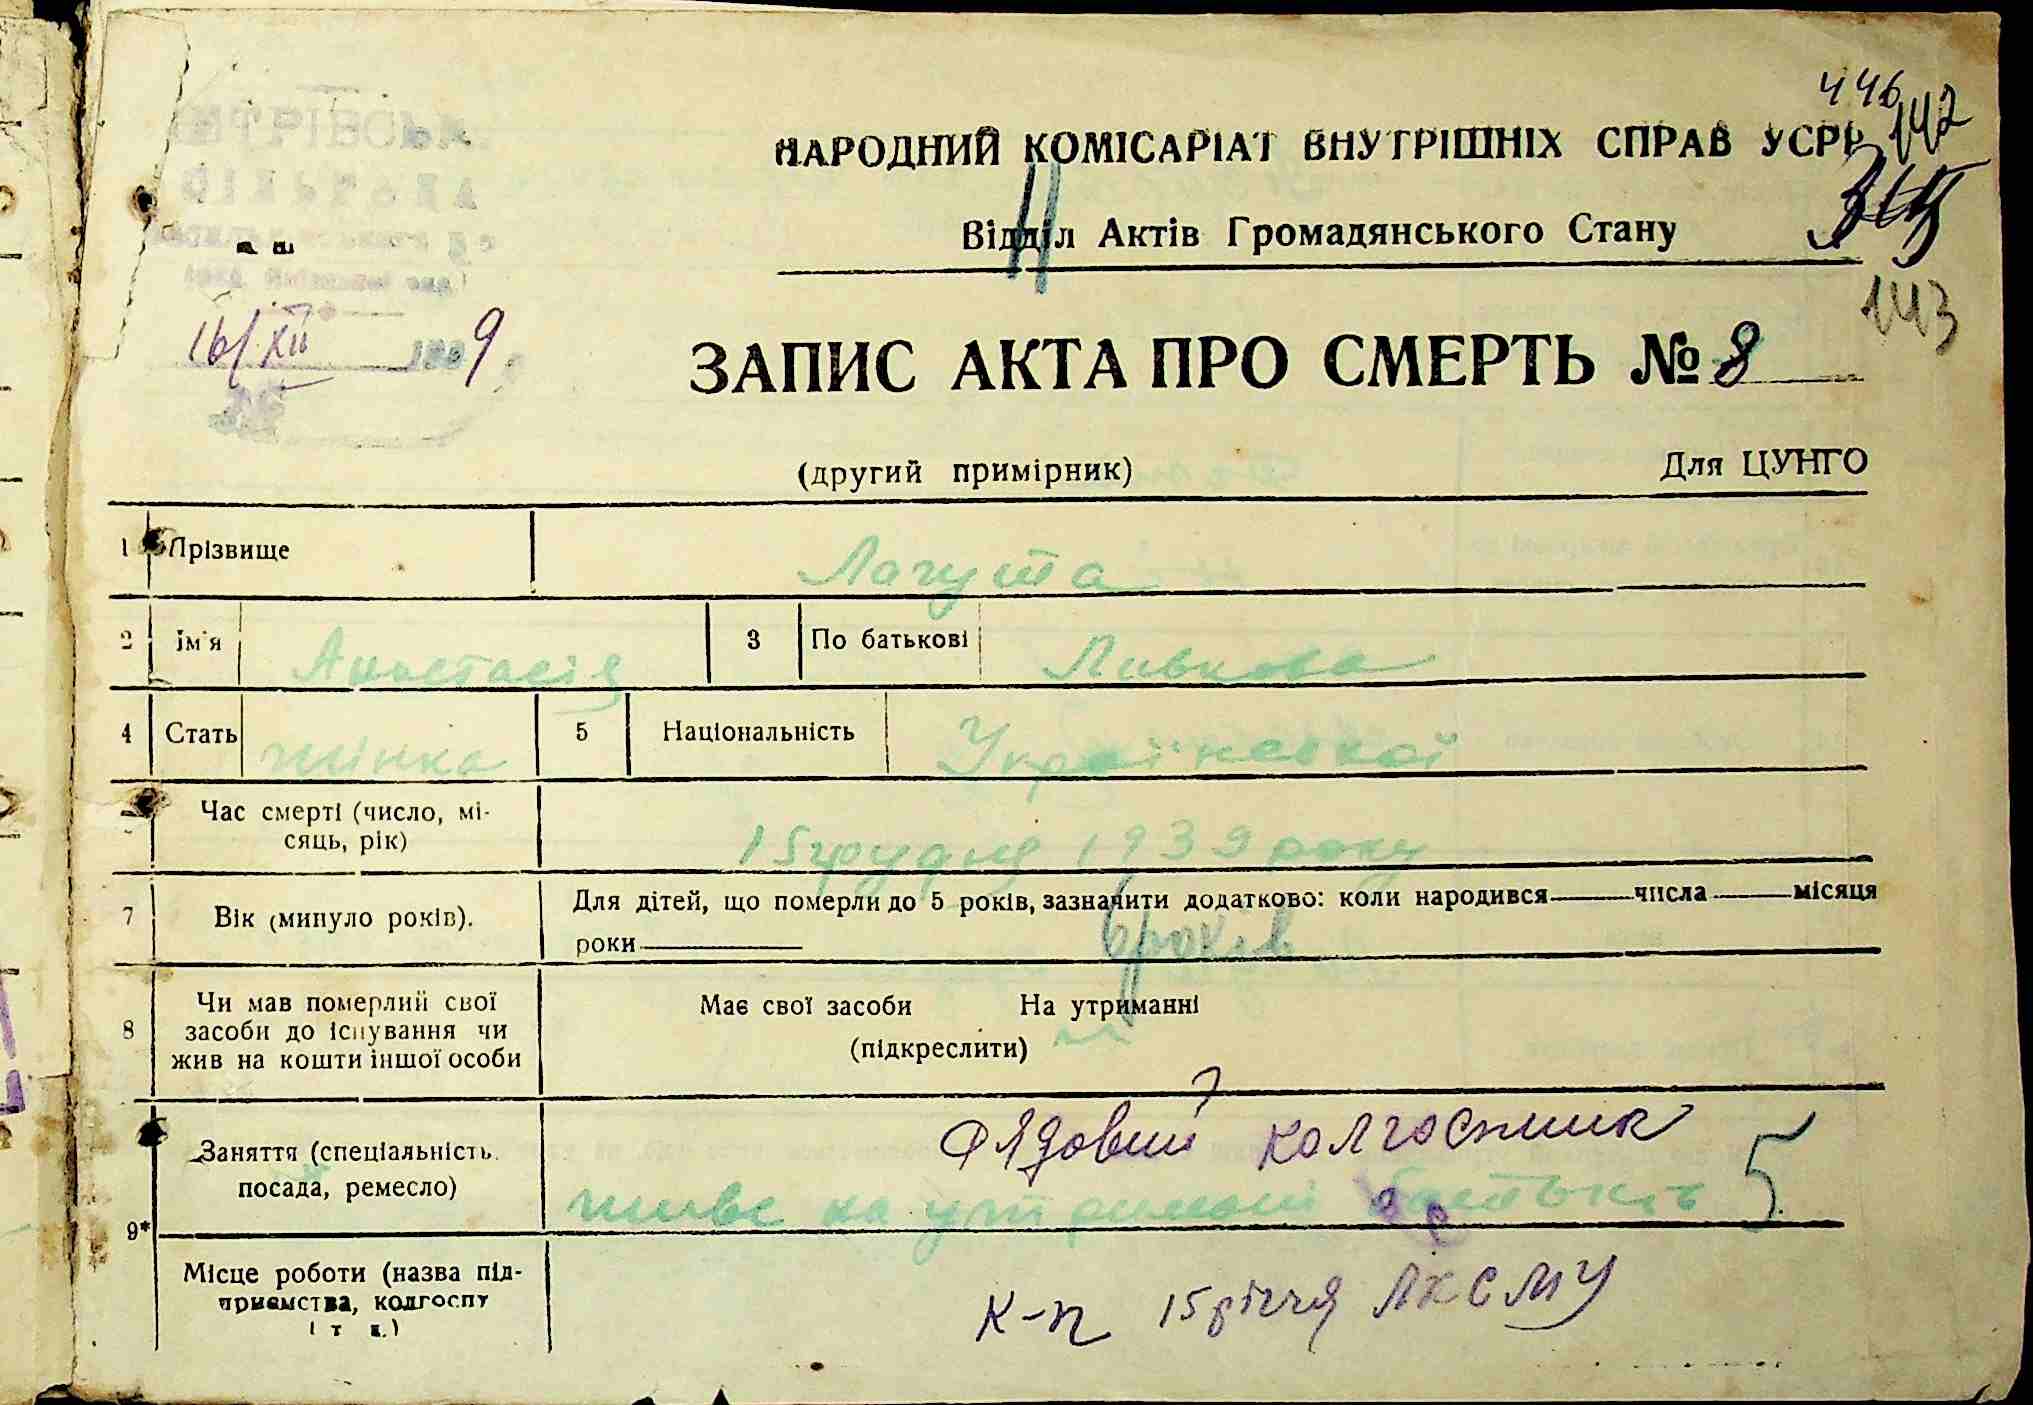 446
142
НАРОДНИЙ КОМІСАРІАТ ВНУТРІШНІХ СПРАВ УСРР
Відділ Актів Громадянського Стану
143
16/XII 1939
ЗАПИС АКТА ПРО СМЕРТЬ № 8
(другий примірник) Для ЦУНГО
1 Прізвище Лагута
2 Ім'я Анастасія 3 По батькові Павловна
4 Стать жінка 5 Національність Української
Час смерті (число, мі-
сяць, рік) 15 грудня 1939 року
7 Вік (минуло років). Для дітей, що померли до 5 років, зазначити додатково: коли народився числа місяця
роки 6 років
8 Чи мав померлий свої
засоби до існування чи
жив на кошти іншої особи
Має свої засоби На утриманні
(підкреслити)
9* Заняття (спеціальність,
посада, ремесло)
рядовий колгоспник
живе на утримані батьків 5
Місце роботи (назва під-
приємства, колгоспу
і т д.)
к-п 15 річчя ЛКСМУ